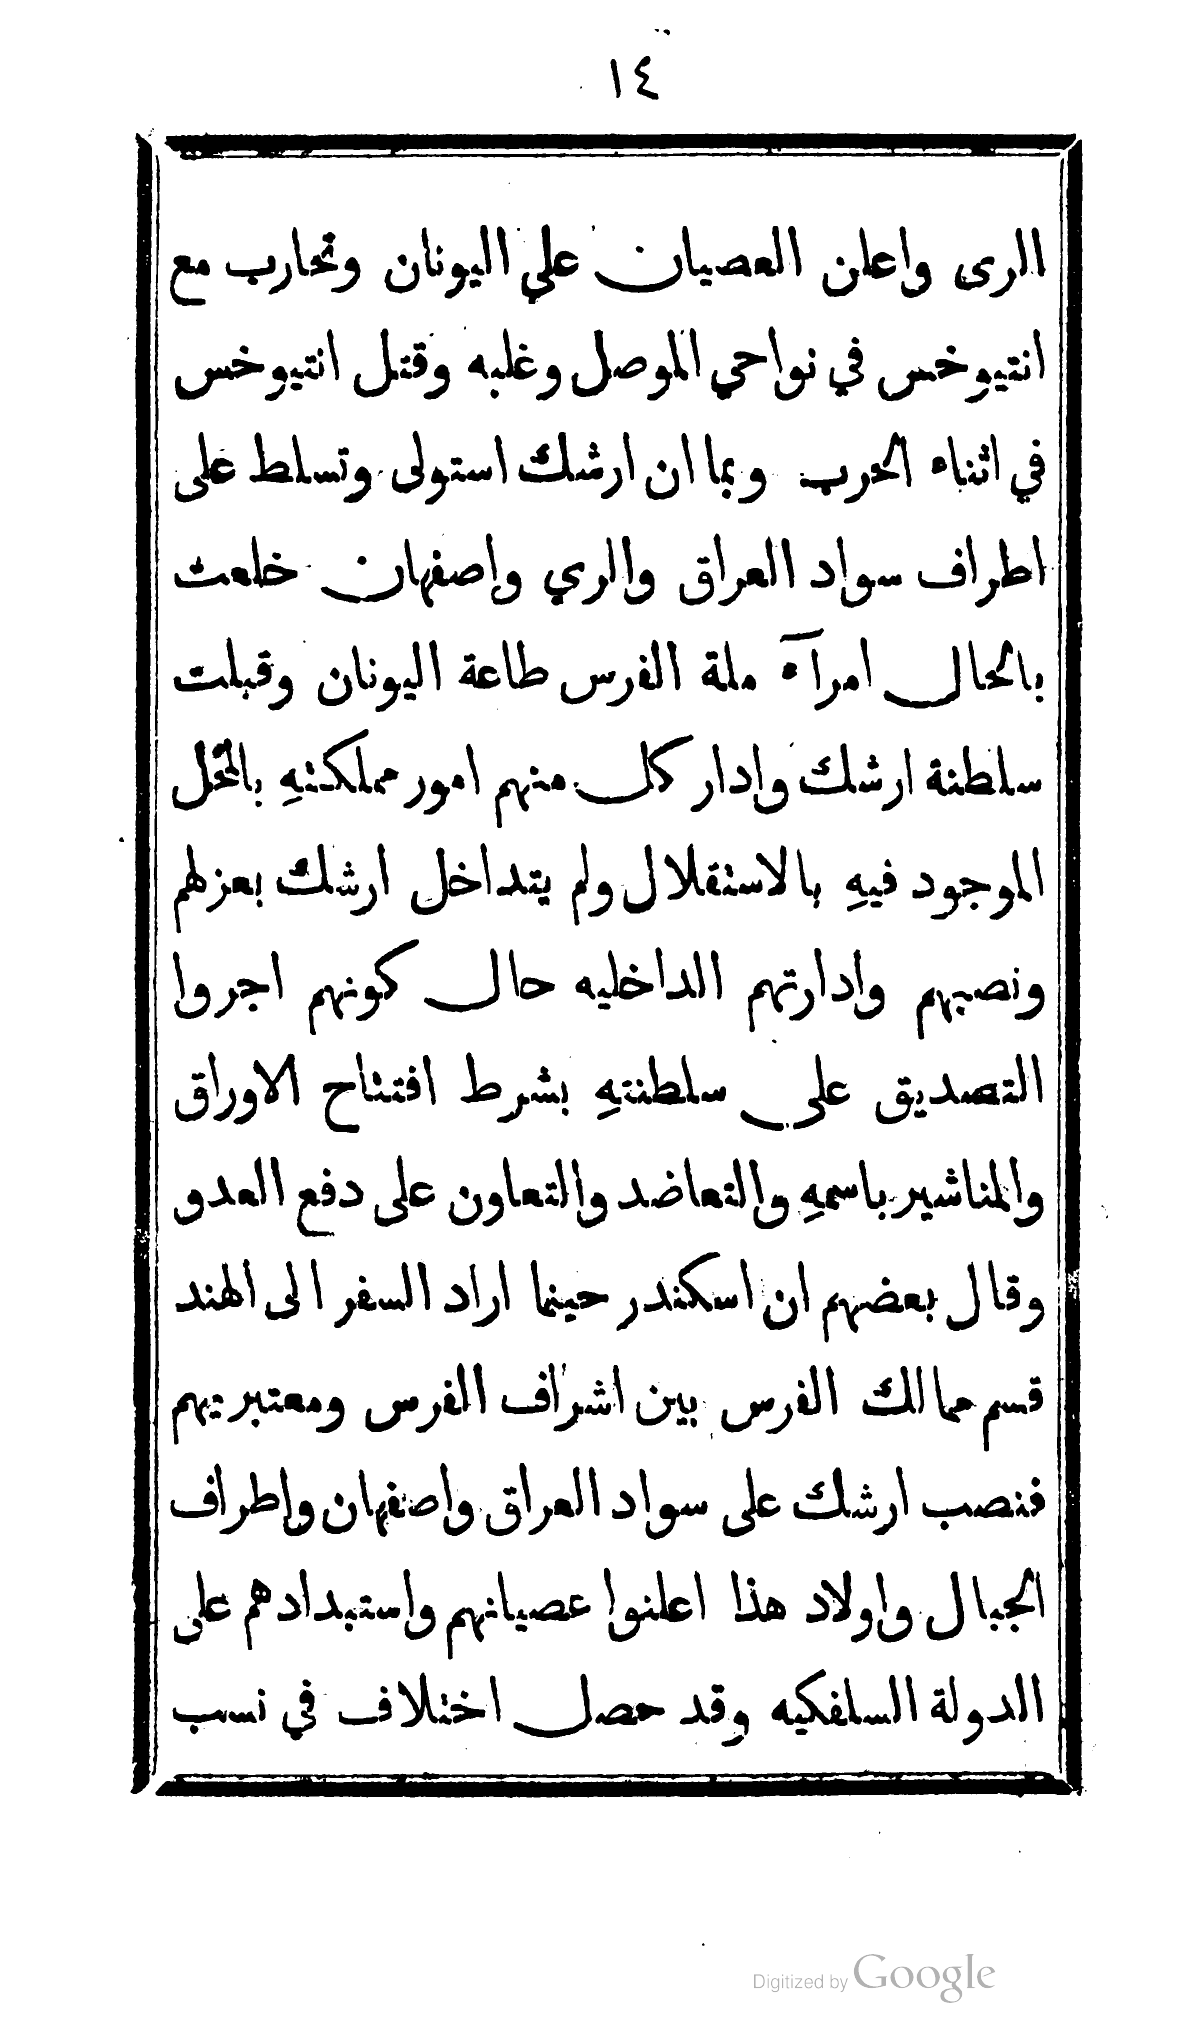 ١٤
الرى واعلن العصيان علي اليونان وتحارب مع
انتيوخس في نواحي الموصل وغلبه وقتل انتيوخس
في اثناء الحرب وبما ان ارشك استولى وتسلط على
اطراف سواد العراق والري واصفهان خلعت
بالحال امرآء ملة الفرس طاعة اليونان وقبلت
سلطنة ارشك وادار كل منهم امور مملكتهِ بالمحل
الموجود فيهِ بالاستقلال ولم يتداخل ارشك بعزلهم
ونصبهم وادارتهم الداخليه حال كونهم اجروا
التصديق على سلطنتهِ بشرط افتتاح الاوراق
والمناشير باسمهِ والتعاضد والتعاون على دفع العدو
وقال بعضهم ان اسكندر حينما اراد السفر الى الهند
قسم ممالك الفرس بين اشراف الفرس ومعتبريهم
فنصب ارشك على سواد العراق واصفهان واطراف
الجبال واولاد هذا اعلنوا عصيانهم واستبدادهم على
الدولة السلفكيه وقد حصل اختلاف في نسب
Digitized by Google